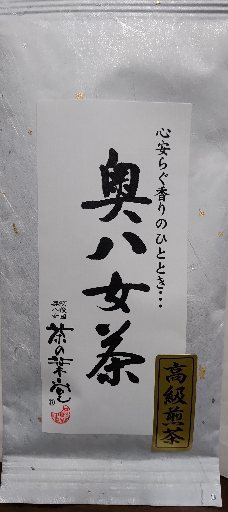 心安らぐ香りのひととき…
奥八女茶
高級煎茶
奥八女
茶の葉堂